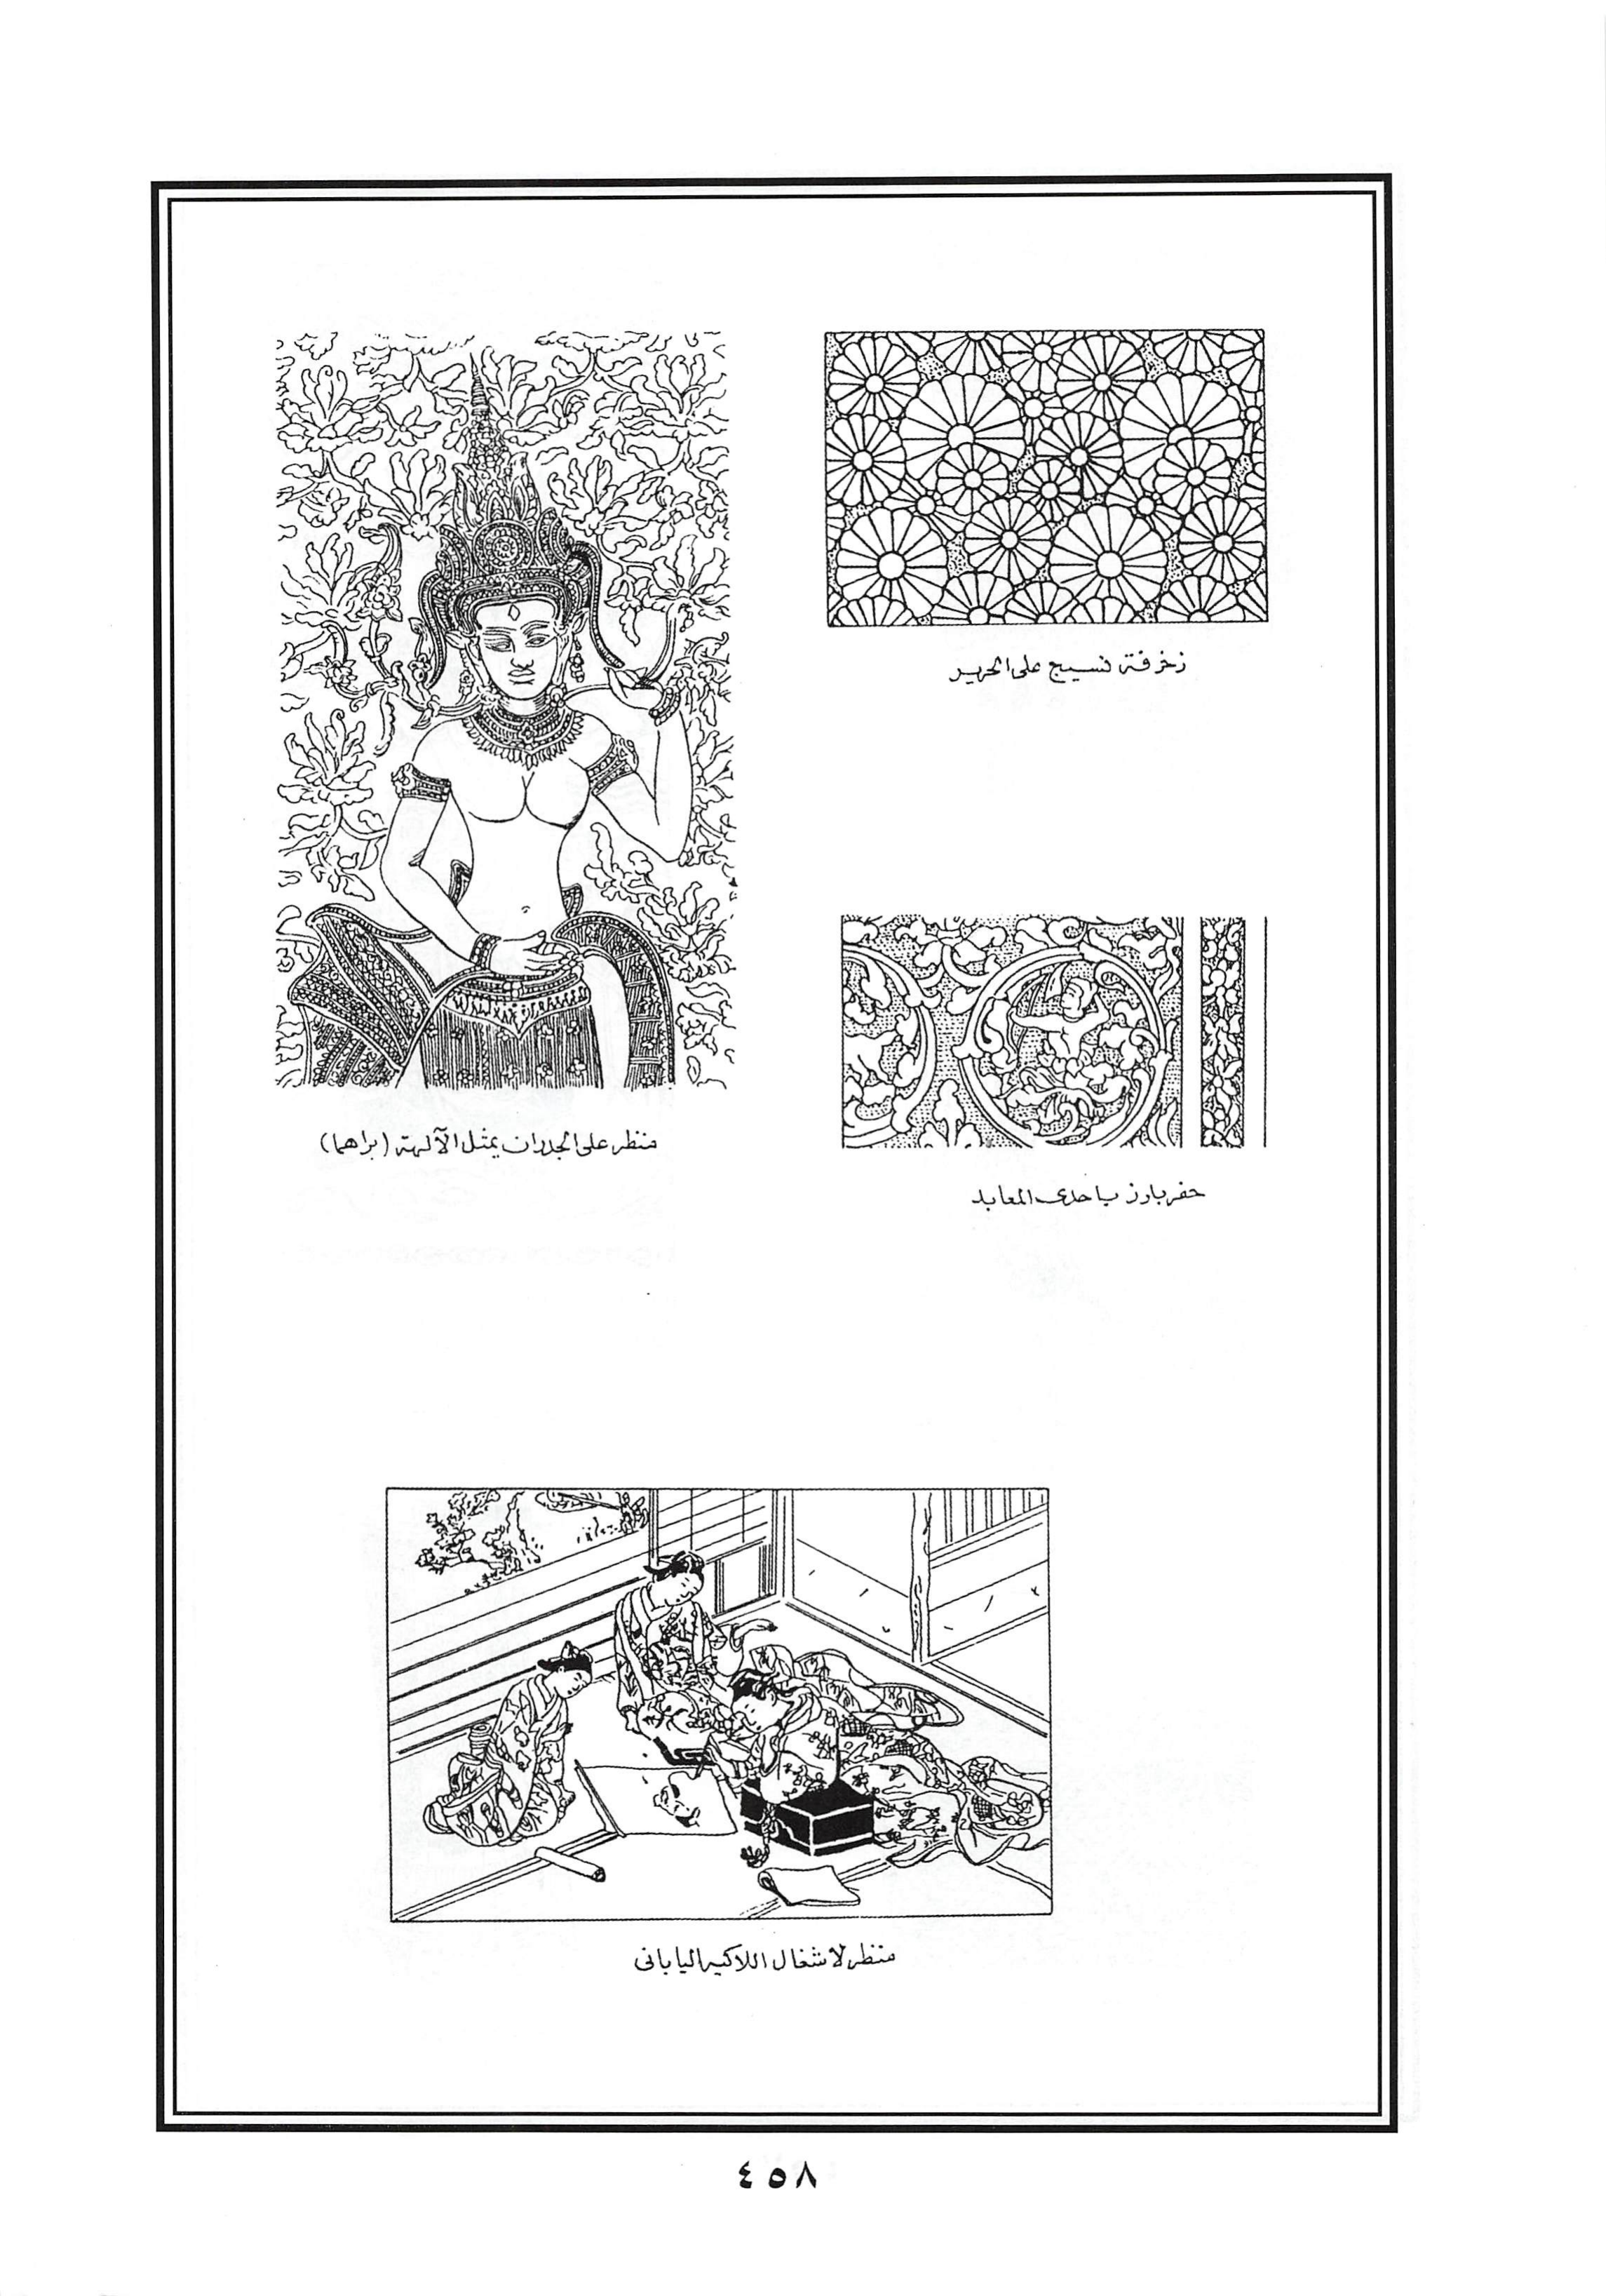 زخرفة نسيج على الحرير
منظر على الجدران يمثل الآلهة (براهما)
حفر بارز بإحدى المعابد
منظر لأشغال اللاكيه اليابانى
٤٥٨